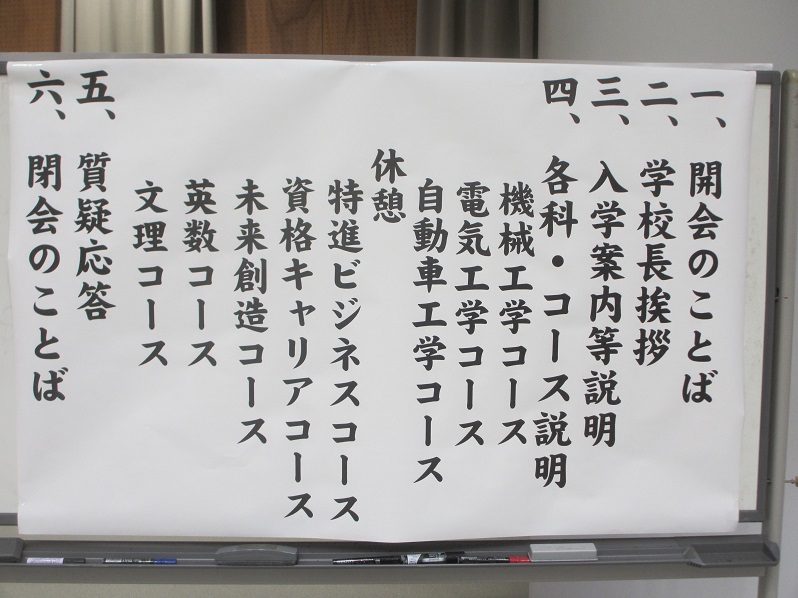 一、開会のことば
二、学校長挨拶
三、入学案内等説明
四、各科・コース説明
機械工学コース
電気工学コース
自動車工学コース
休憩
特進ビジネスコース
資格キャリアコース
未来創造コース
英数コース
文理コース
五、質疑応答
六、閉会のことば